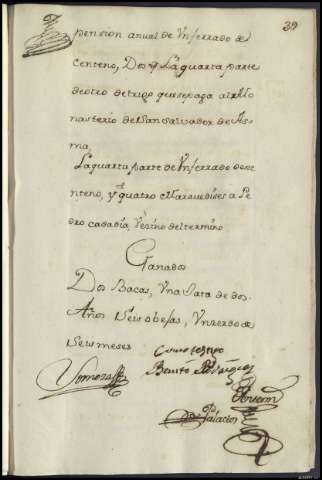 39
pension anual de Vn ferrado de
centeno, Dos y La quarta parte
de otro de trigo que se paga al Mo
nasterio de San Salvador de As
ma,
La quarta parte de Vn ferrado de ce
nteno, y quatro Maravedises a Pe
dro, Vezino del termino
Ganados
Dos Bacas, Vna Jata de dos
Años Seis obejas, Vn zerdo de
Seis meses
Como testigo
Benito Rodriguez
Palacios